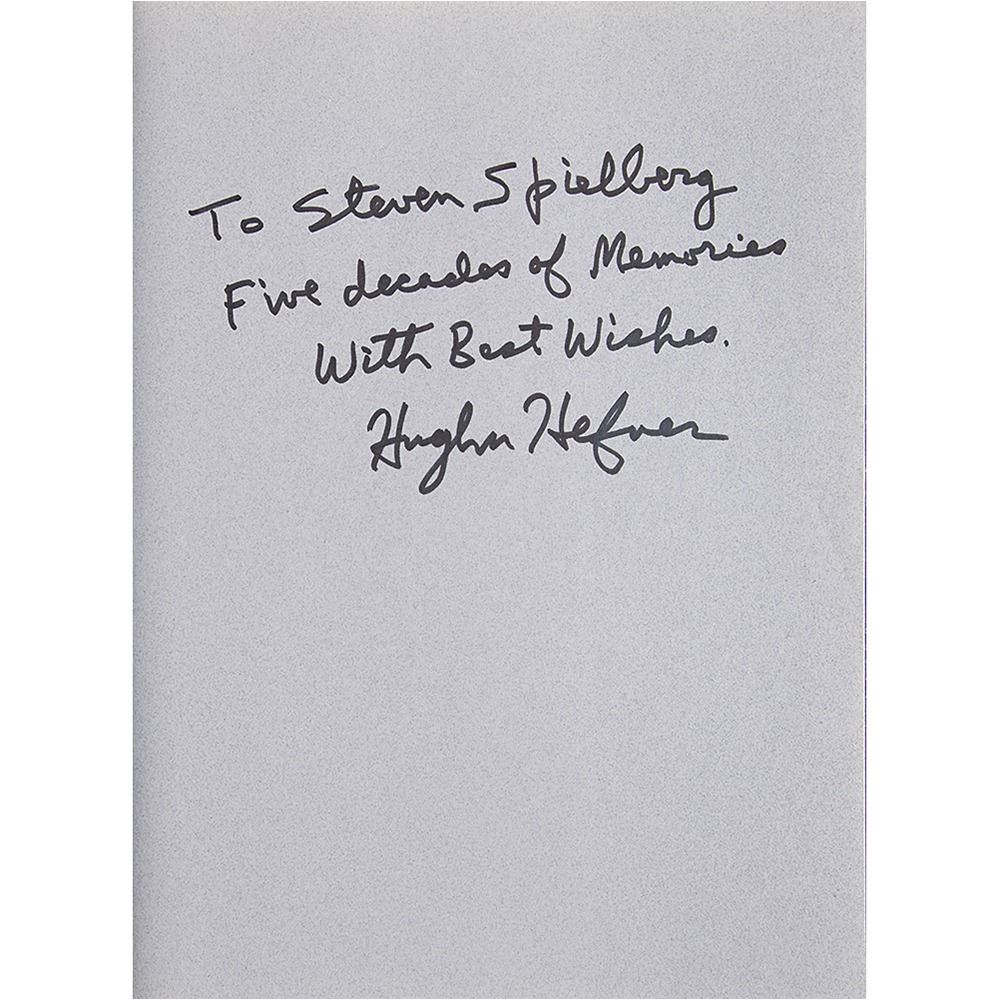 To Steven Spielberg
Five decades of Memories
With Best Wishes.
Hugh M Hefner